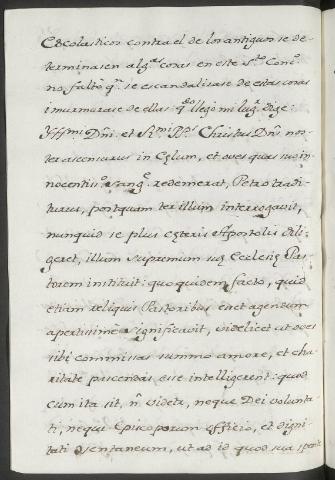 Escolasticos contra el de los antiguos se de-
terminasen alg.as cosas en este S.to Conc.o
no faltó q.n se escandalisase de estas cosas
i murmurase de ellas. q.do llegó mi lug.r dige:
Yllmi Dñi. et R.mi P.P.s Christus Dñs nos-
ter ascensurus in Cælum, et oves quas suo in-
nocentis.o sang.e redemerat, Petro tradi-
turus, postquam ter illum interrogavit,
nunquid se plus cæteris Apostolis dili-
geret, illum supremum suæ Ecclesiæ Pas-
torem instituit: quo quidem facto, quid
etiam reliquis Pastoribus esset agendum
apertissime significavit, videlicet ut oves
sibi commissas summo amore, et cha-
ritate pascendas esse intelligerent: quod
cum ita sit, ñ videtr, neque Dei volunta-
ti, neque Episcoporum officio, et digni-
tati consentaneum, ut ad id quod sua sponte